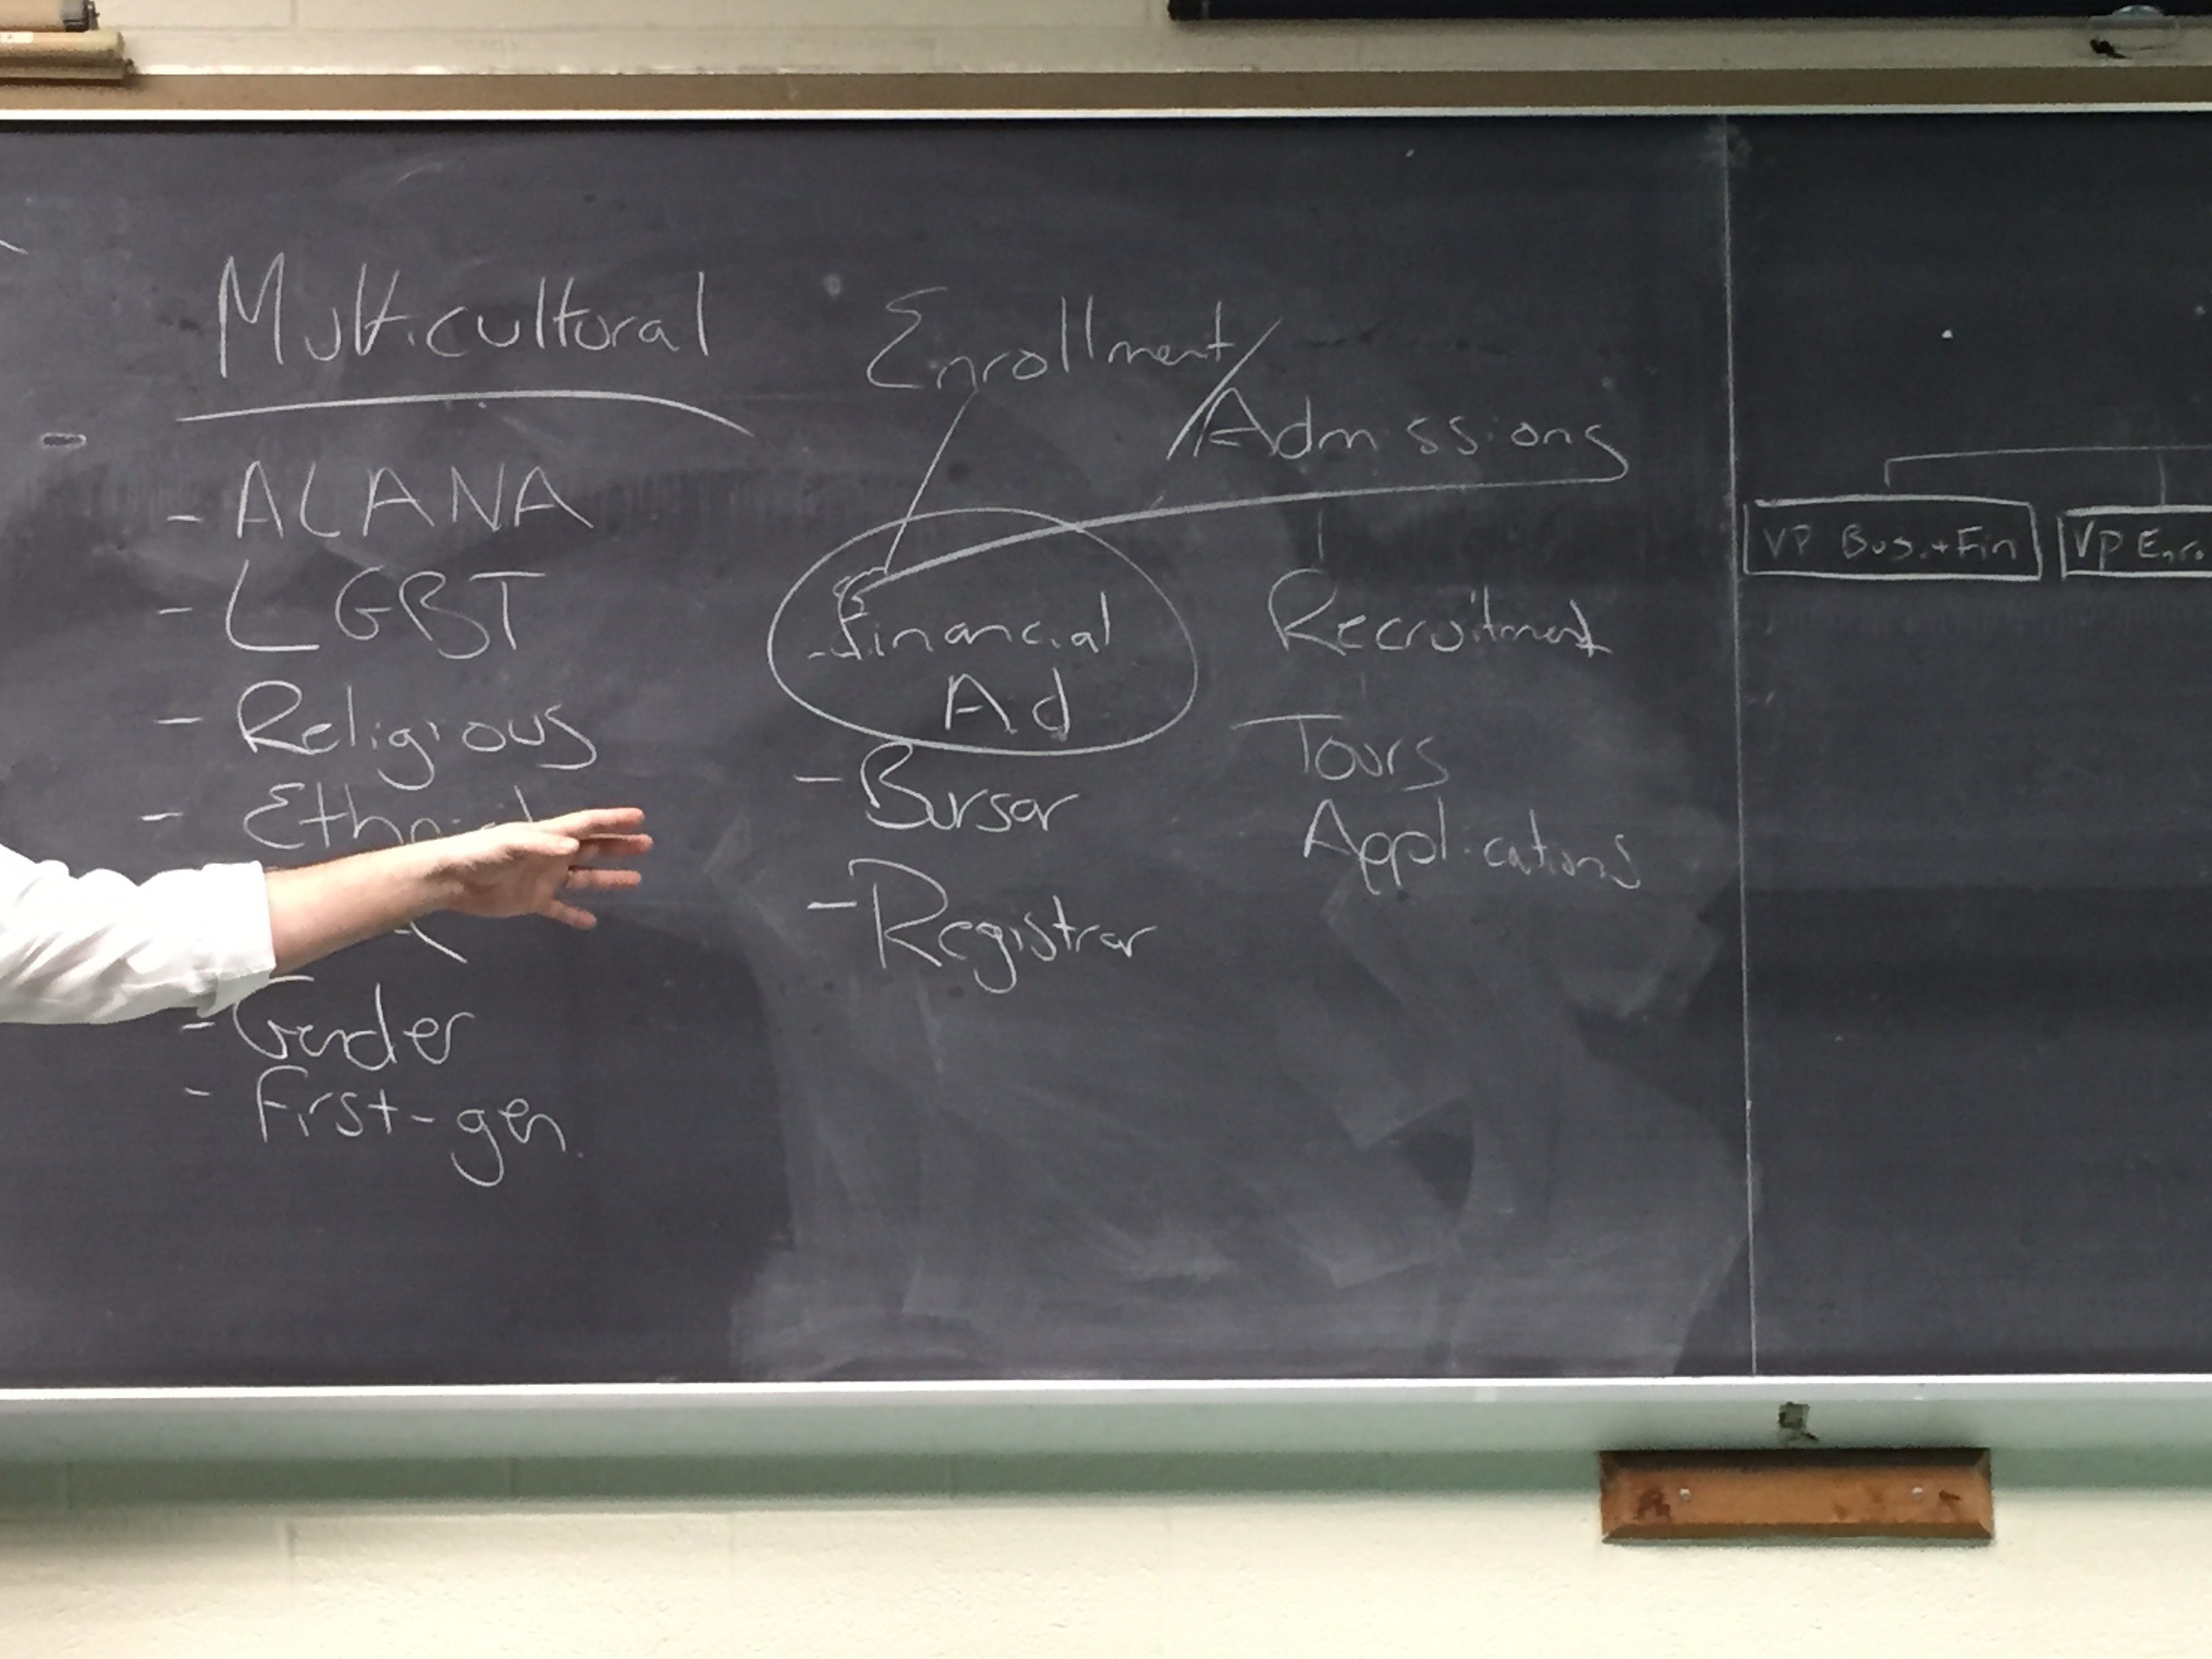 Multicultural
- ALANA
- LGBT
- Religious
-
- Gender
- First-gen.
Enrollment/
Admissions
- Financial
Aid
- Bursar
- Registrar
Recruitment
Tours
Applications
VP Bus. + Fin
VP Enro